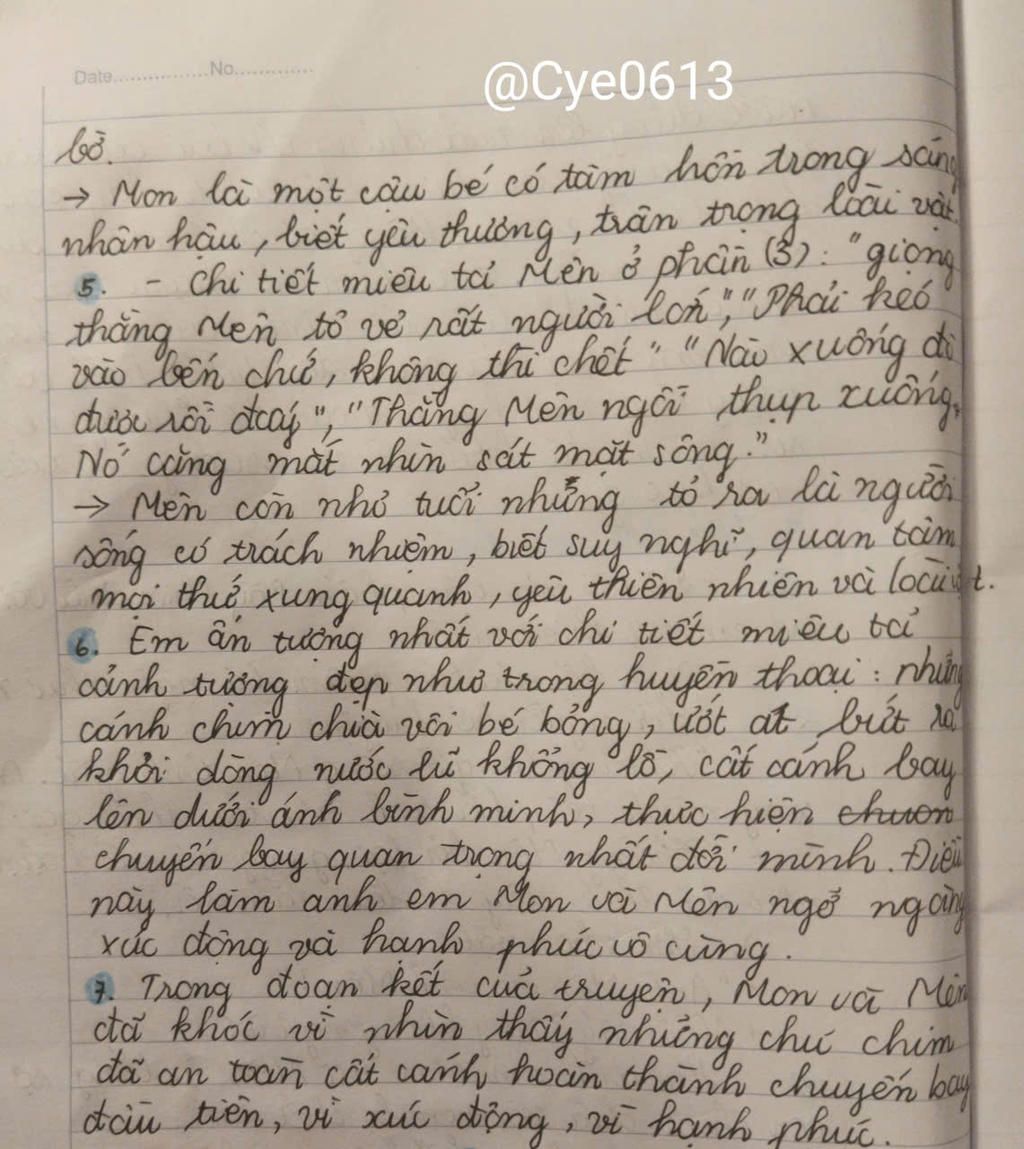 Date...............No..............
@Cye0613
bờ.
→ Mon là một cậu bé có tâm hồn trong sáng
nhân hậu, biết yêu thương, trân trọng loài vật.
5. - Chi tiết miêu tả Mên ở phần (3): "giọng
thằng Mên tỏ vẻ rất người lớn", "Phải kéo
vào bến chứ, không thì chết" "Nào xuống đi
được rồi đấy", "Thằng Mên ngồi thụp xuống,
Nó căng mắt nhìn sát mặt sông."
→ Mên còn nhỏ tuổi nhưng tỏ ra là người
sống có trách nhiệm, biết suy nghĩ, quan tâm
mọi thứ xung quanh, yêu thiên nhiên và loài vật.
6. Em ấn tượng nhất với chi tiết miêu tả
cảnh tượng đẹp như trong huyền thoại: những
cánh chim chìa vôi bé bỏng, ướt át bứt ra
khỏi dòng nước lũ khổng lồ, cất cánh bay
lên dưới ánh bình minh, thực hiện chuon
chuyến bay quan trọng nhất đời mình. Điều
này làm anh em Mon và Mên ngỡ ngàng
xúc động và hạnh phúc vô cùng.
7. Trong đoạn kết của truyện, Mon và Mên
đã khóc vì nhìn thấy những chú chim
đã an toàn cất cánh hoàn thành chuyến bay
đầu tiên, vì xúc động, vì hạnh phúc.